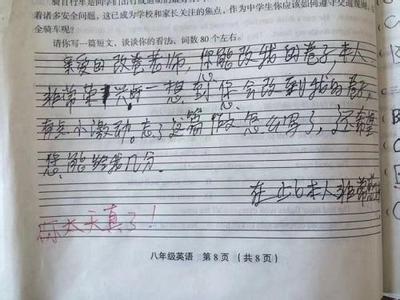 骑自行车是同学们出行或运动的
着诸多安全问题，这已成为学校和家长关注的焦点，作为中学生你应该如何遵守交通规则，
全骑车呢？
请你写一篇短文，谈谈你的看法，词数80个左右。
亲爱的改卷老师，你能改我的卷子，本人
非常荣兴，一想到您会改到我的卷子，
有点小激动。忘了这篇作文怎么写了，还希望
您能给我几分。
在此本人非常
你太天真了！
八年级英语 第8页（共8页）